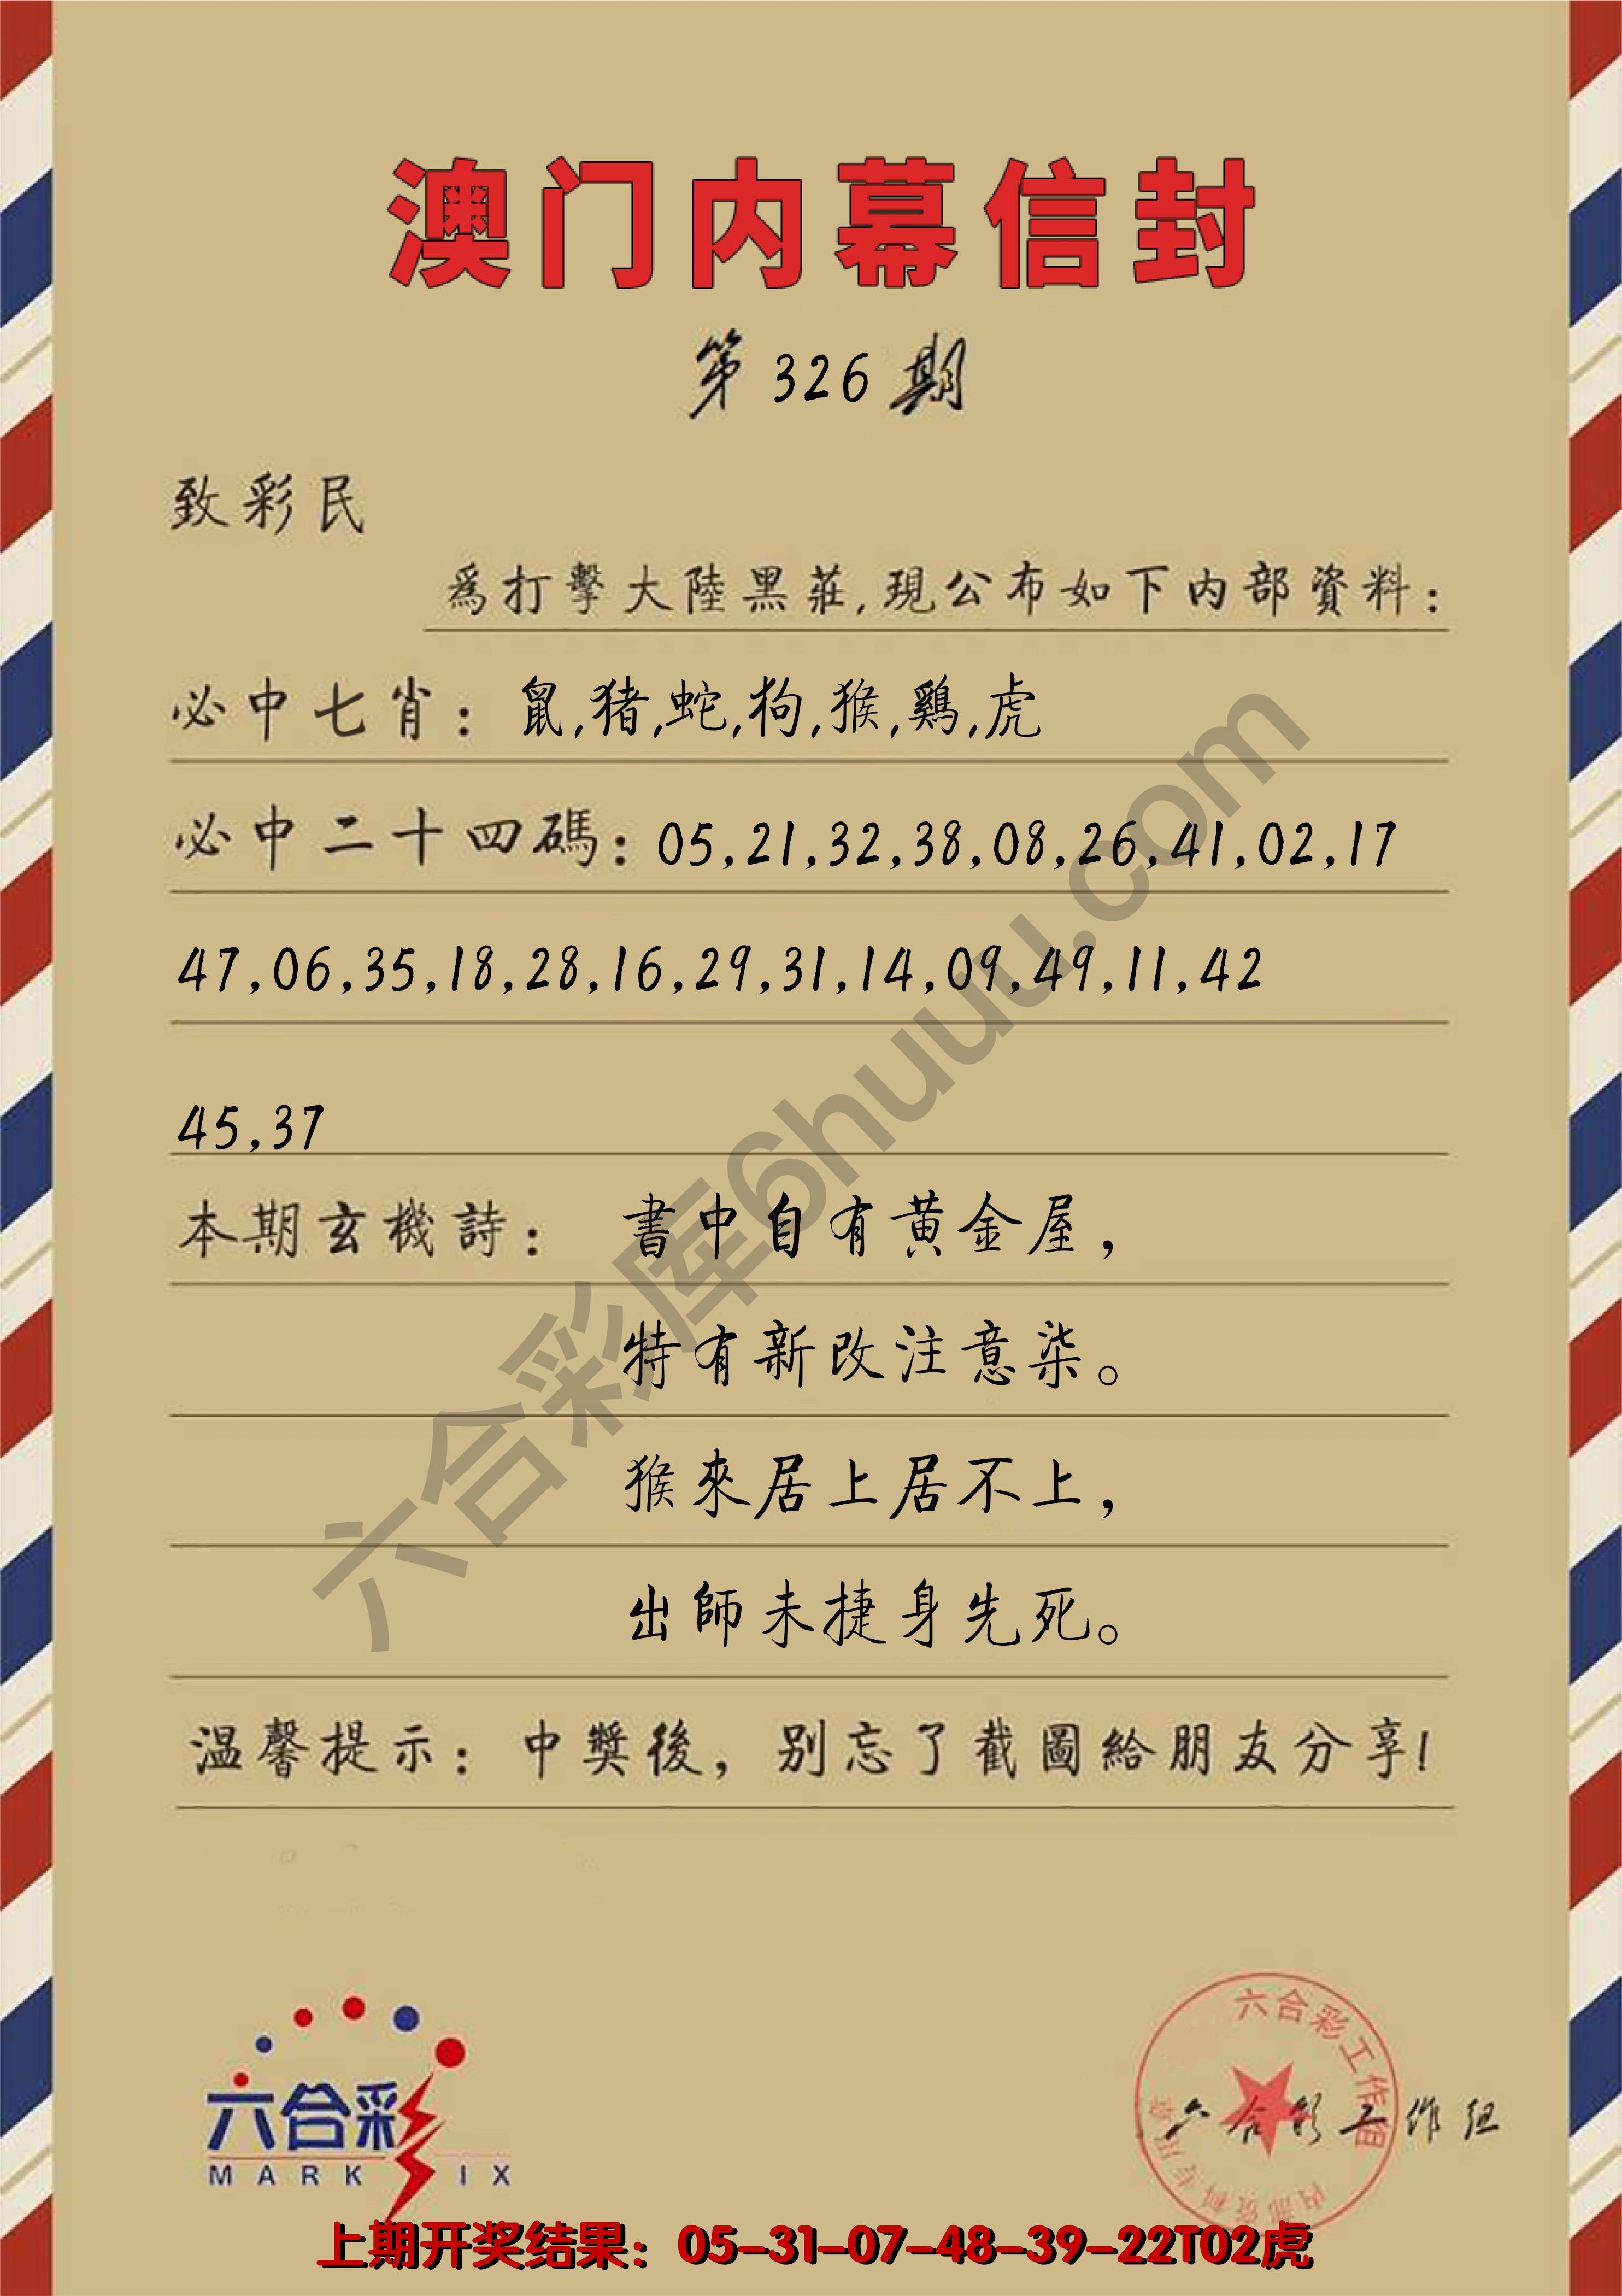 澳门内幕信封
第326期
致彩民
爲打擊大陸黑莊,現公布如下内部資料:
必中七肖: 鼠,猪,蛇,狗,猴,鷄,虎
必中二十四碼: 05,21,32,38,08,26,41,02,17
47,06,35,18,28,16,29,31,14,09,49,11,42
45,37
本期玄機詩: 書中自有黄金屋,
特有新改注意柒。
猴來居上居不上,
出師未捷身先死。
温馨提示: 中獎後, 别忘了截圖給朋友分享!
六合彩库6huuu.com
六合彩
MARK SIX
六合彩工作组
内部资料专用章
六合彩工作组
上期开奖结果: 05-31-07-48-39-22T02虎